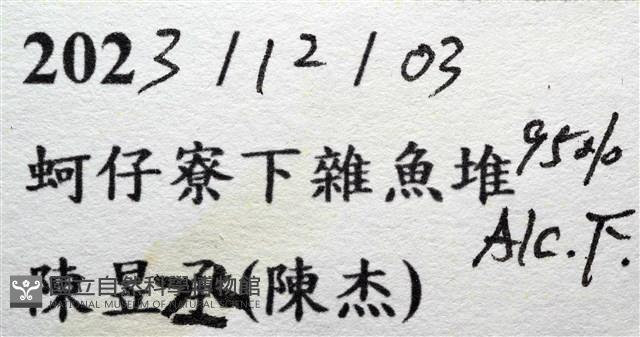 2023/12/03
蚵仔寮下雜魚堆 95%
Alc. 下.
陳昱丞(陳杰)
國立自然科學博物館
NATIONAL MUSEUM OF NATURAL SCIENCE